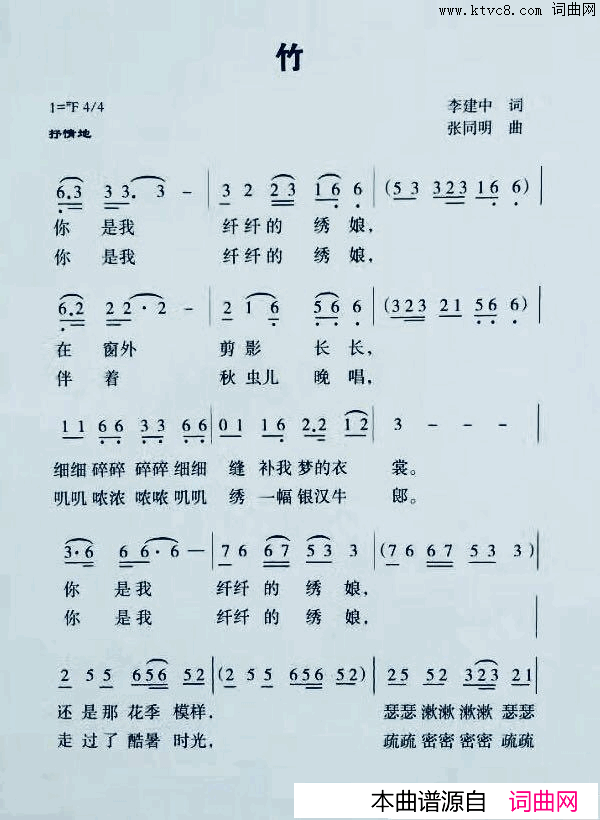 www.ktvc8.com 词曲网
竹
1=#F 4/4
李建中 词
抒情地
张同明 曲
6.3 3 3. 3 - | 3 2 2 3 1 6 6 | (5 3 3 2 3 1 6 6) |
你 是我 纤纤的 绣 娘,
你 是我 纤纤的 绣 娘,
6.2 2 2·2 - | 2 1 6 5 6 6 | (3 2 3 2 1 5 6 6) |
在 窗外 剪影 长长,
伴 着 秋虫儿 晚唱,
1 1 6 6 3 3 6 6 | 0 1 1 6 2.2 1 2 | 3 - - - |
细细 碎碎 碎碎 细细 缝 补我 梦的衣 裳。
叽叽 哝浓 哝哝 叽叽 绣 一幅 银汉牛 郎。
3·6 6 6·6 - | 7 6 6 7 5 3 3 | (7 6 6 7 5 3 3)
你 是我 纤纤 的 绣娘,
你 是我 纤纤 的 绣娘,
2 5 5 6 5 6 5 2 | (2 5 5 6 5 6 5 2) | 2 5 5 2 3 2 3 2 1 |
还 是那 花季 模样, 瑟瑟 漱漱 漱漱 瑟瑟
走 过了 酷暑 时光, 疏疏 密密 密密 疏疏
本曲谱源自 词曲网